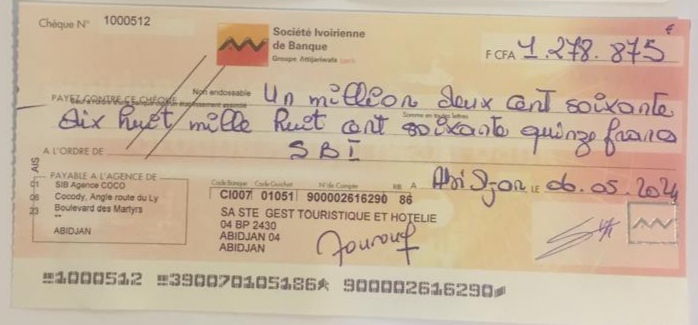 Chèque N° 1000512
Société Ivoirienne
de Banque
Groupe Attijariwafa bank
F CFA 1.278.875
Non endossable
PAYEZ CONTRE CE CHÈQUE Un million deux cent soixante
Somme en toutes lettres
dix huit mille huit cent soixante quinze francs
A L'ORDRE DE SBI
PAYABLE A L'AGENCE DE
SIB Agence COCO
Cocody, Angle route du Ly
Boulevard des Martyrs
**
ABIDJAN
AIS
01
06
23
Code Banque Code Guichet N° de Compte RB
CI007 01051 900002616290 86
A Abidjan LE 06.05.2024
SA STE GEST TOURISTIQUE ET HOTELIE
04 BP 2430
ABIDJAN 04
ABIDJAN
1000512 390070105186 900002616290